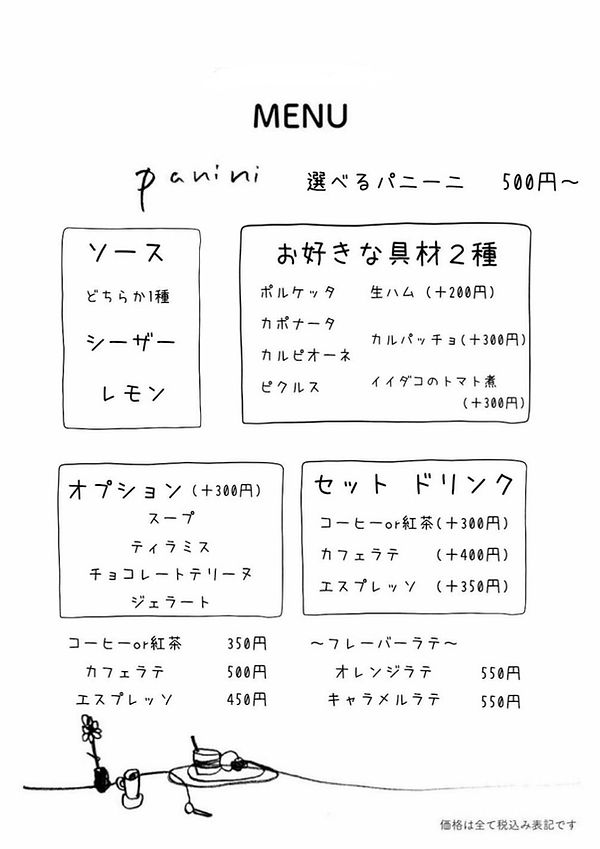 MENU
panini 選べるパニーニ 500円～
ソース
どちらか1種
シーザー
レモン
お好きな具材２種
ポルケッタ 生ハム (＋200円)
カポナータ
カルパッチョ(＋300円)
カルピオーネ
ピクルス イイダコのトマト煮
(＋300円)
オプション (＋300円)
スープ
ティラミス
チョコレートテリーヌ
ジェラート
セット ドリンク
コーヒーor紅茶(＋300円)
カフェラテ (＋400円)
エスプレッソ (＋350円)
コーヒーor紅茶 350円
カフェラテ 500円
エスプレッソ 450円
～フレーバーラテ～
オレンジラテ 550円
キャラメルラテ 550円
価格は全て税込み表記です